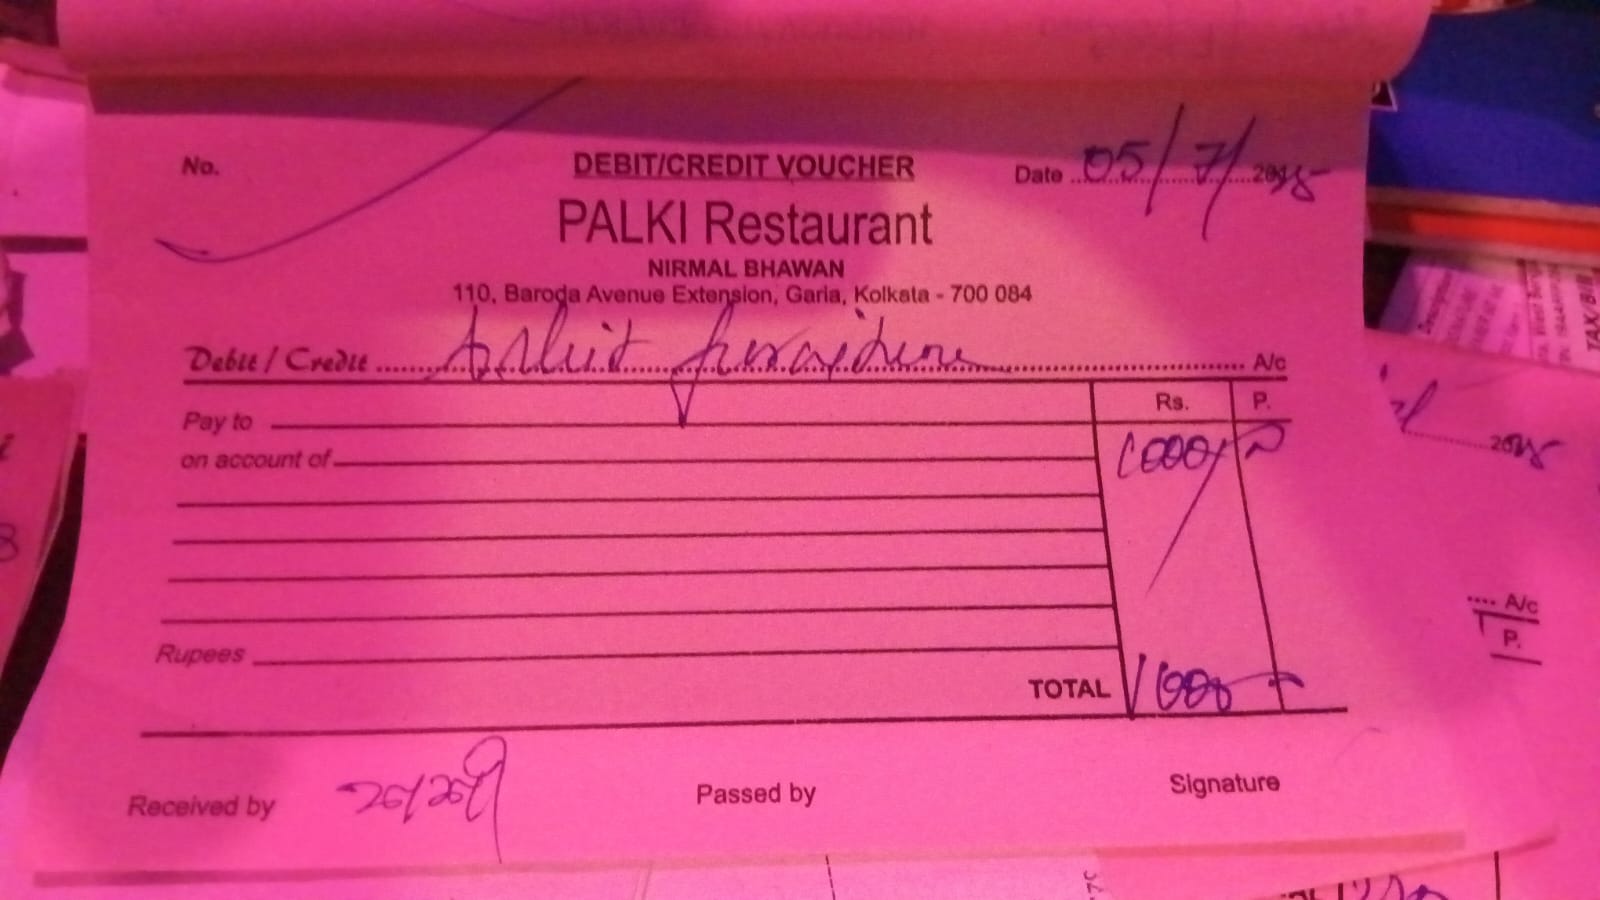 No.
DEBIT/CREDIT VOUCHER
Date 05/7/2025
PALKI Restaurant
NIRMAL BHAWAN
110, Baroda Avenue Extension, Garia, Kolkata - 700 084
Debit / Credit A/c
Rs. P.
Pay to
1000/-
on account of
Rupees
TOTAL 1000/-
Received by
Passed by
Signature
A/c
P.